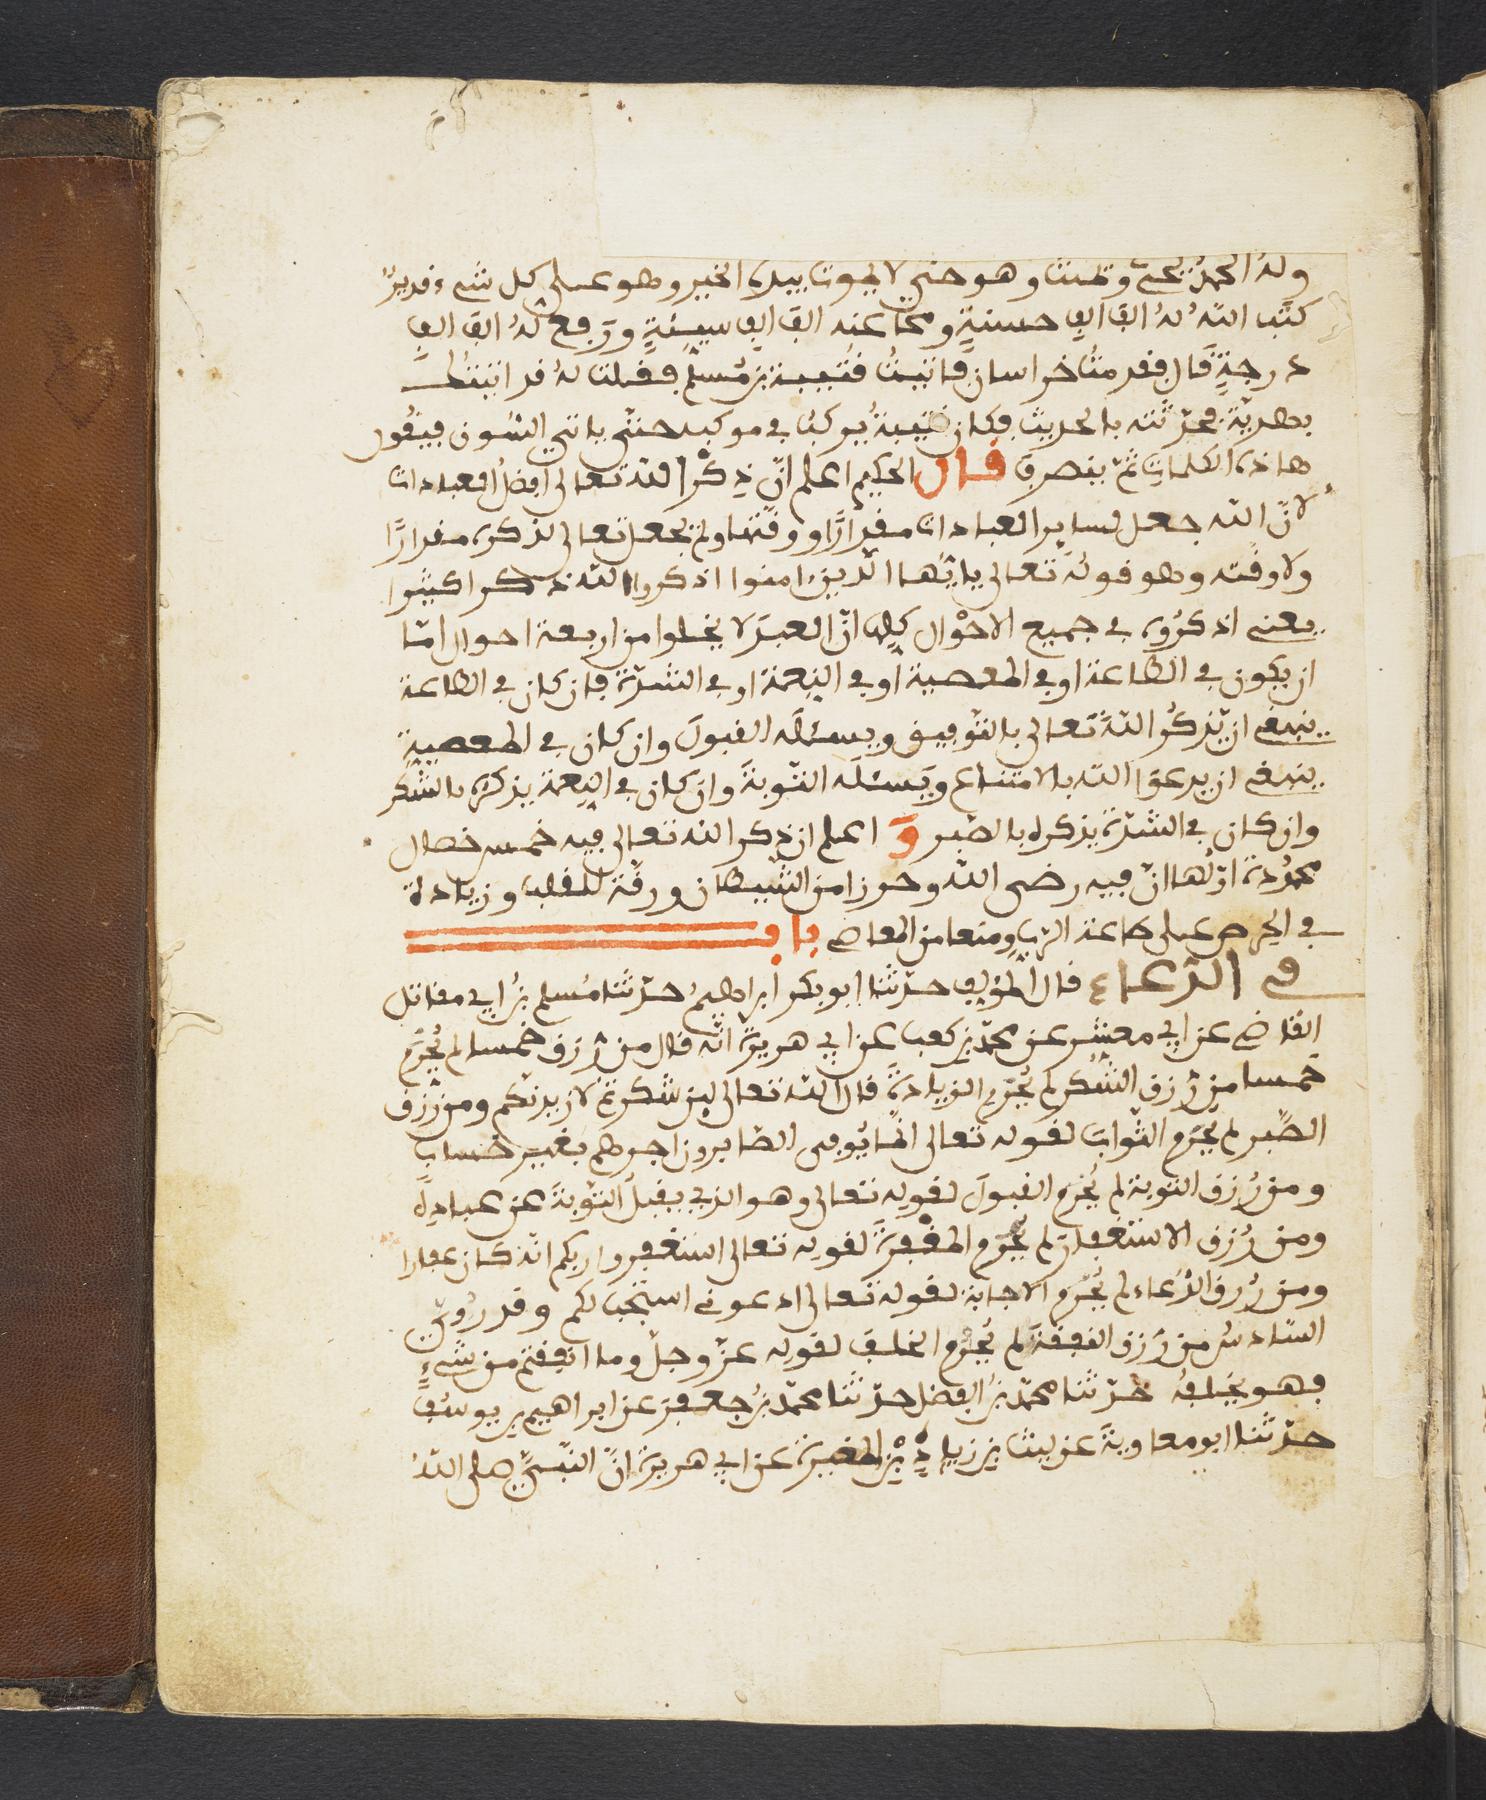 وله الحمد يحي ويميت وهو حي لا يموت بيده الخير وهو على كل شيء قدير
كتب الله له الف الف حسنة ومحا عنه الف الف سيئة ورفع له الف الف
درجة قال فقدمت خراسان فاتيت قتيبة بن مسلم فقلت له قد اتيتك
بهدية فحدثته بالحديث فكان قتيبة يركب في موكبه حتى ياتي السوق فيقول
هاذه الكلمات ثم ينصرف قال الحكيم اعلم ان ذكر الله تعالى افضل العبادات
لان الله جعل لساير العبادات مقدارا ووقتها ولم يجعل تعالى لذكره مقدارا
ولا وقته وهو قوله تعالى يا يها الذين ءامنوا اذكروا الله ذكرا كثيرا
يعني اذكروه في جميع الاحوال كلها ان العبد لا يخلوا من اربعة احوال اما
ان يكون في الطاعة او في المعصية او في النعمة او في الشدة فان كان في الطاعة
ينبغي ان يذكر الله تعالى بالتوفيق ويسئله القبول وان كان في المعصية
ينبغي ان يدعوا الله بالامتناع ويسئله التوبة وان كان في النعمة يذكره بالشكر
وان كان في الشدة يذكره بالصبر و اعلم ان ذكر الله تعالى فيه خمس خصال
محمودة اولها ان فيه رضى الله وحرزا من الشيطان ورقة للقلب وزيادة
في الحرص على طاعة الرب ومنعا من المعاصي باب
في الدعاء قال المولف حدثنا ابو بكر ابراهيم حدثنا مسلم بن ابي مقاتل
القاضي عن ابي معشر عن محمد بن كعب عن ابي هريرة انه قال من رزق خمسا لم يحرم
خمسا من رزق الشكر لم يحرم الزيادة قال الله تعالى لين شكرتم لازيدنكم ومن رزق
الصبر لم يحرم الثواب لقوله تعالى انما يوفى الصابرون اجرهم بغير حساب
ومن رزق التوبة لم يحرم القبول لقوله تعالى وهو الذي يقبل التوبة عن عباده
ومن رزق الاستغفار لم يحرم المغفرة لقوله تعالى استغفروا ربكم انه كان غفارا
ومن رزق الدعاء لم يحرم الاجابة لقوله تعالى ادعوني استجب لكم وقد روي
السادس من رزق النفقة لم يحرم الخلف لقوله عز وجل وما انفقتم من شيء
فهو يخلفه حدثنا محمد بن الفضل حدثنا محمد بن جعفر عن ابراهيم بن يوسف
حدثنا ابو معاوية عن ليث بن زياد بن المغيرة عن ابي هريرة ان النبي صلى الله